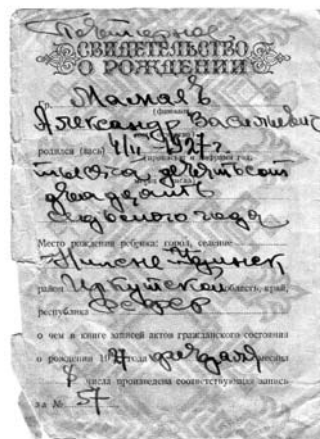 Повторное
СВИДЕТЕЛЬСТВО
О РОЖДЕНИИ
Гр. Мамаевъ
(фамилия)
Александр Васильевич
родился (ась) 4/II - 1927 г.
(прописью и цифрами год,
тысяча девятьсот
двадцать
седьмого года
Место рождения ребенка: город, селение
Нижне-Удинск
район Иркутской область, край,
республика РСФСР
о чем в книге записей актов гражданского состояния
о рождении 1927 года февраля месяца
8 числа произведена соответствующая запись
за № 57